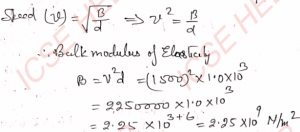 Speed (v) = √B/d ⇒ v² = B/d
∴ Bulk modulus of Elasticity
B = v²d = (1500)² × 1.0 × 10³
= 2250000 × 1.0 × 10³
= 2.25 × 10³⁺⁶ = 2.25 × 10⁹ N/m²